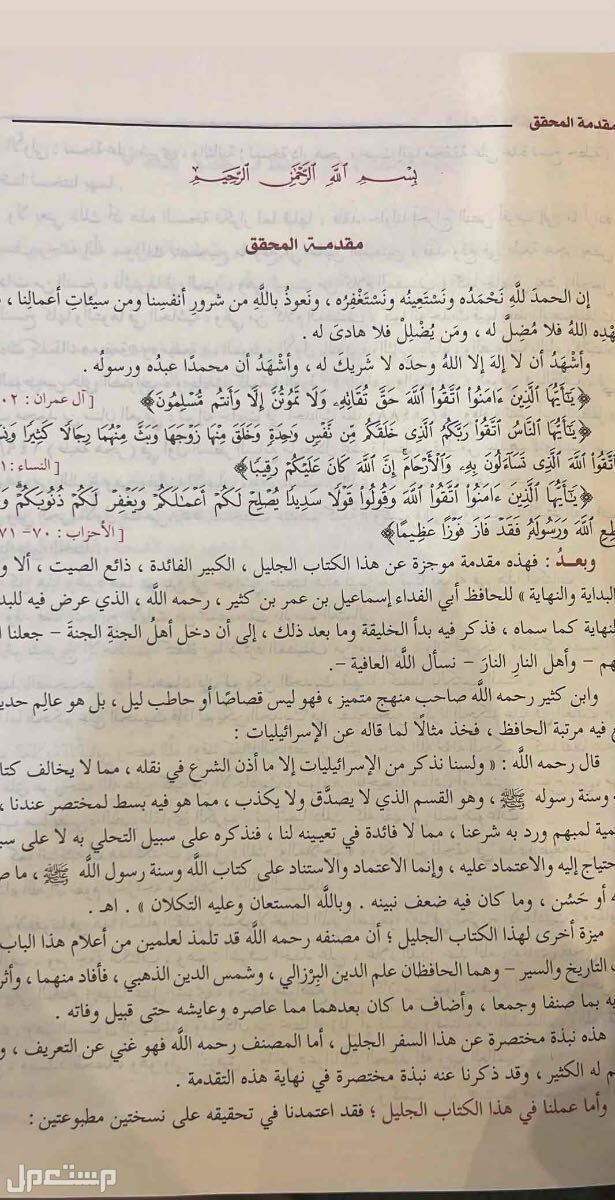 مقدمة المحقق
بِسْمِ اللَّهِ الرَّحْمَٰنِ الرَّحِيمِ
مقدمة المحقق
إن الحمدَ للَّهِ نَحْمَدُه ونَسْتَعِينُه ونَسْتَغْفِرُه ، ونَعوذُ باللَّهِ من شرورِ أنفسِنا ومن سيئاتِ أعمالِنا ،
يَهْدِه اللهُ فلا مُضِلَّ له ، ومَن يُضْلِلْ فلا هادىَ له .
وأشهَدُ أن لا إلهَ إلا اللهُ وحدَه لا شَرِيكَ له ، وأشْهَدُ أن محمدًا عبدُه ورسولُه .
﴿يَٰٓأَيُّهَا ٱلَّذِينَ ءَامَنُوا۟ ٱتَّقُوا۟ ٱللَّهَ حَقَّ تُقَاتِهِۦ وَلَا تَمُوتُنَّ إِلَّا وَأَنتُم مُّسْلِمُونَ﴾ [آل عمران :
﴿يَٰٓأَيُّهَا ٱلنَّاسُ ٱتَّقُوا۟ رَبَّكُمُ ٱلَّذِى خَلَقَكُم مِّن نَّفْسٍ وَٰحِدَةٍ وَخَلَقَ مِنْهَا زَوْجَهَا وَبَثَّ مِنْهُمَا رِجَالًا كَثِيرًا
ٱتَّقُوا۟ ٱللَّهَ ٱلَّذِى تَسَآءَلُونَ بِهِۦ وَٱلْأَرْحَامَ إِنَّ ٱللَّهَ كَانَ عَلَيْكُمْ رَقِيبًا﴾ [النساء :
﴿يَٰٓأَيُّهَا ٱلَّذِينَ ءَامَنُوا۟ ٱتَّقُوا۟ ٱللَّهَ وَقُولُوا۟ قَوْلًا سَدِيدًا يُصْلِحْ لَكُمْ أَعْمَٰلَكُمْ وَيَغْفِرْ لَكُمْ ذُنُوبَكُمْ
ٱللَّهَ وَرَسُولَهُۥ فَقَدْ فَازَ فَوْزًا عَظِيمًا﴾ [الأحزاب : ٧٠-
وبعدُ : فهذه مقدمة موجزة عن هذا الكتاب الجليل ، الكبير الفائدة ، ذائع الصيت ، ألا
البداية والنهاية » للحافظ أبي الفداء إسماعيل بن عمر بن كثير ، رحمه اللَّه ، الذي عرض فيه
كما سماه ، فذكر فيه بدأ الخليقة وما بعد ذلك ، إلى أن دخل أهلُ الجنةِ الجنةَ – جعلنا
– وأهل النارِ النارَ – نسأل اللَّه العافية –.
وابن كثير رحمه اللَّه صاحب منهج متميز ، فهو ليس قصاصًا أو حاطب ليل ، بل هو عالم
فيه مرتبة الحافظ ، فخذ مثالًا لما قاله عن الإسرائيليات :
قال رحمه اللَّه : « ولسنا نذكر من الإسرائيليات إلا ما أذن الشرع في نقله ، مما لا يخالف
وسنة رسوله ﷺ ، وهو القسم الذي لا يصدَّق ولا يكذب ، مما هو فيه بسط لمختصر عندنا ،
لمبهم ورد به شرعنا ، مما لا فائدة في تعيينه لنا ، فنذكره على سبيل التحلي به لا على
إليه والاعتماد عليه ، وإنما الاعتماد والاستناد على كتاب اللَّه وسنة رسول اللَّه ﷺ ، ما
أو حَسُن ، وما كان فيه ضعف نبينه . وباللَّه المستعان وعليه التكلان » . اهـ .
ميزة أخرى لهذا الكتاب الجليل ؛ أن مصنفه رحمه اللَّه قد تلمذ لعلمين من أعلام هذا الباب
التاريخ والسير – وهما الحافظان علم الدين البِرْزالي ، وشمس الدين الذهبي ، فأفاد منهما ،
بما صنفا وجمعا ، وأضاف ما كان بعدهما مما عاصره وعايشه حتى قبيل وفاته .
هذه نبذة مختصرة عن هذا السفر الجليل ، أما المصنف رحمه اللَّه فهو غني عن التعريف ،
له الكثير ، وقد ذكرنا عنه نبذة مختصرة في نهاية هذه التقدمة .
وأما عملنا في هذا الكتاب الجليل ؛ فقد اعتمدنا في تحقيقه على نسختين مطبوعتين :
مستعمل